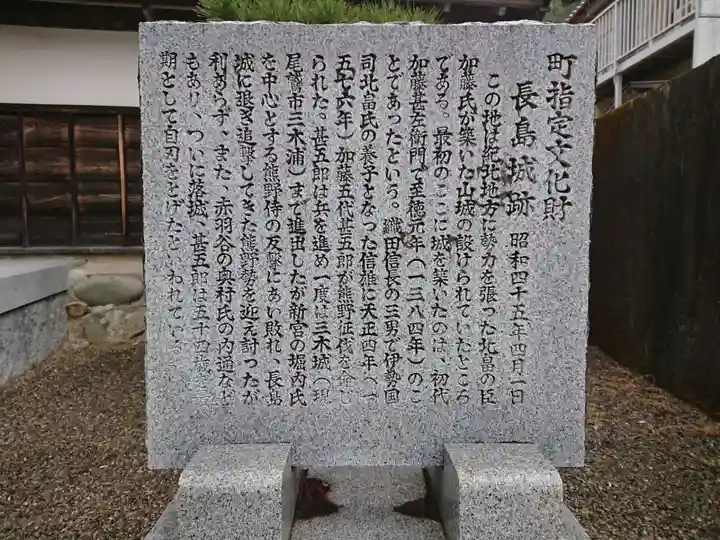 町指定文化財
長島城跡 昭和四十五年四月一日
この地は紀北地方に勢力を張った北畠の臣
加藤氏が築いた山城の設けられていたところ
である。最初のここに城を築いたのは、初代
加藤甚左衛門で至徳元年(一三八四年)のこ
とであったという。織田信長の三男で伊勢国
司北畠氏の養子となった信雄に天正四年(一
五七六年)加藤五代甚五郎が熊野征伐を命じ
られた。甚五郎は兵を進め一度は三木城(現
尾鷲市三木浦)まで進出したが新宮の堀内氏
を中心とする熊野侍の反撃にあい敗れ、長島
城に退き追撃してきた熊野勢を迎え討ったが
利あらず、また、赤羽谷の奥村氏の内通など
もあり、ついに落城、甚五郎は五十四歳を一
期として自刃をとげたといわれている。